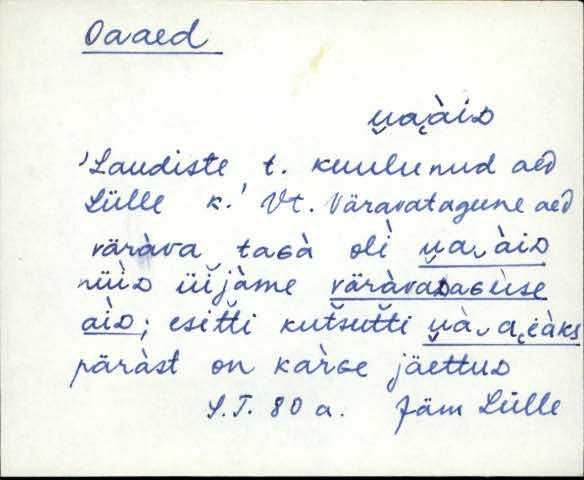 Oaaed
u̯a‿àiᴅ
'Laudiste t. kuulunud aed
Lülle k.' Vt. Väravatagune aed
väràva taɢà olì u̯a‿àiᴅ
nüìᴅ üijàme väràvaᴅaɢùse
aìᴅ; esitti kutsutti u̯à‿aèàks
päràst on kàrɢe jäettuᴅ
S.T. 80 a. Jäm Lülle